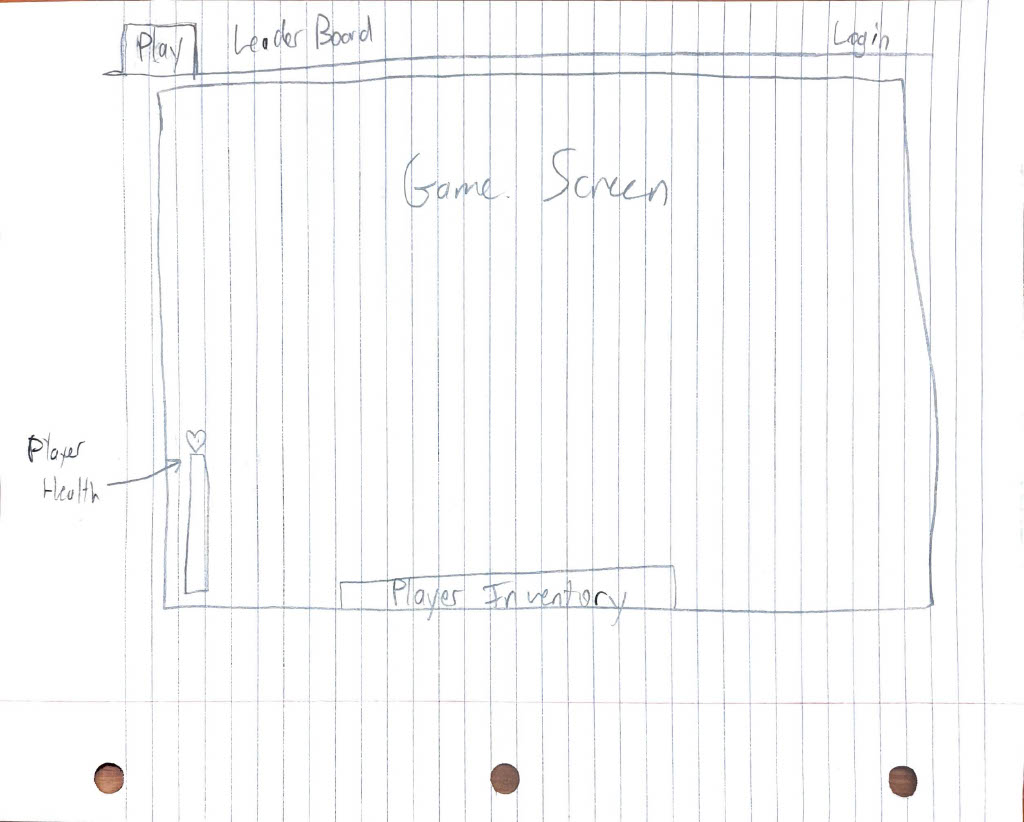 Play Leader Board Login
Game Screen
Player
Health
Player Inventory